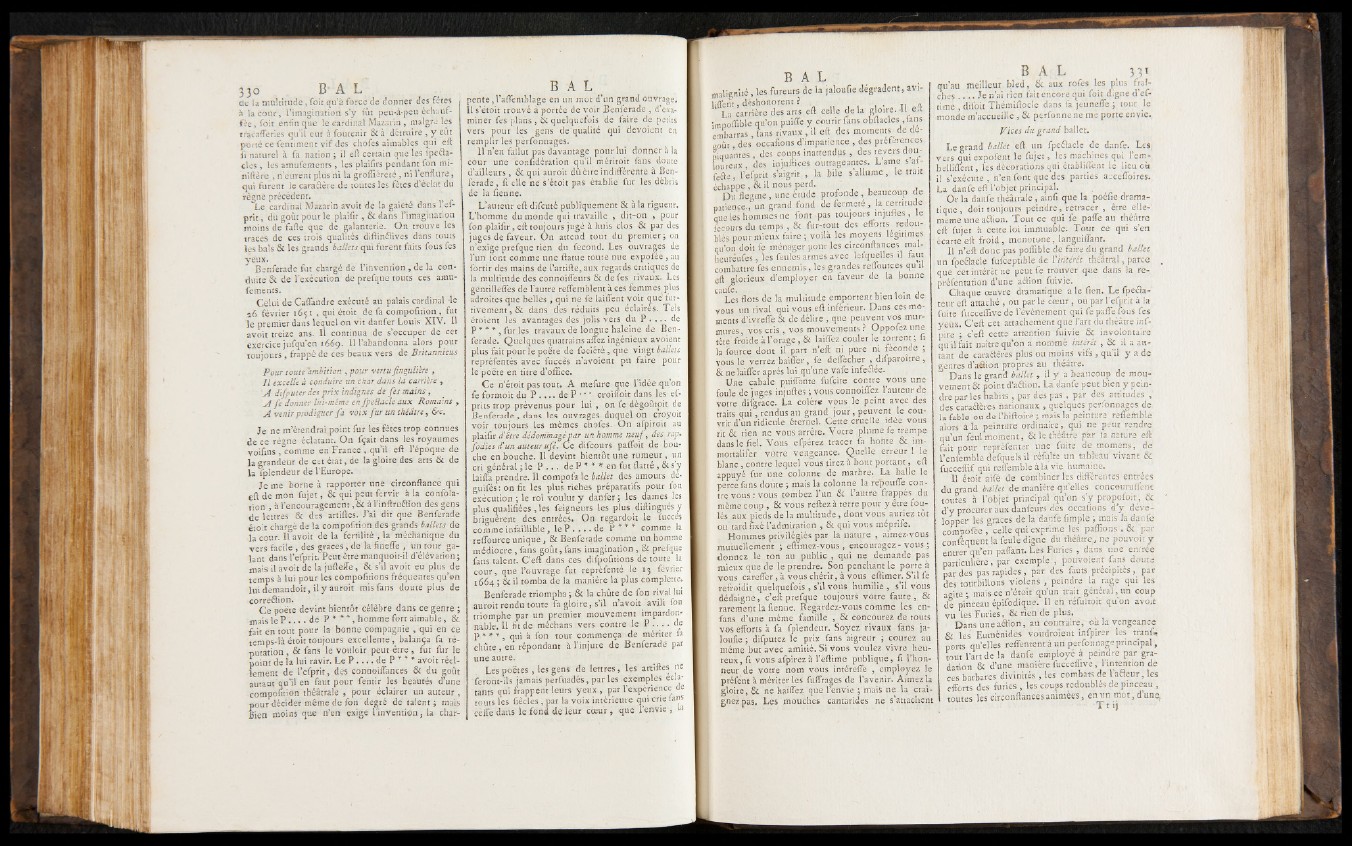 330 BAL
de la multitude, ſoit qu'à force de donner des fêtes
à la cour, l'imagination s'y fût peu-à-peu échauf-
fée, ſoit enfin que le cardinal Mazarin, malgré les
tracaſſeries qu'il eut à ſoutenir & à détruire, y eût
porté ce ſentiment vif des choſes aimables qui eſt
ſi naturel à ſa nation; il eſt certain que les ſpecta-
cles, les amuſements, les plaiſirs pendant ſon mi-
niſtère, n'eurent plus ni la groſſièreté, ni l'enflure,
qui furent le caractère de toutes les fêtes d'éclat du
règne précédent.
Le cardinal Mazarin avoit de la gaieté dans l'eſ-
prit, du goût pour le plaiſir, & dans l'imagination
moins de faſte que de galanterie. On trouve les
traces de ces trois qualités diſtinctives dans tous
les bals & les grands ballets qui furent faits ſous ſes
yeux.
Benſerade fut chargé de l'invention, de la con-
duite & de l'exécution de preſque tous ces amu-
ſements.
Celui de Caſſandre exécuté au palais cardinal le
26 février 1651, qui étoit de ſa compoſition, fut
le premier dans lequel on vit danſer Louis XIV. Il
avoit treize ans. Il continua de s'occuper de cet
exercice juſqu'en 1669. Il l'abandonna alors pour
toujours, frappé de ces beaux vers de Britannicus
Pour toute ambition, pour vertu ſingulière,
Il excelle à conduire un char dans la carrière,
A diſputer des prix indignes de ſes mains,
A ſe donner lui-même en ſpectacle aux Romains,
A venir prodiguer ſa voix ſur un théâtre, &c.
Je ne m'étendrai point ſur les fêtes trop connues
de ce règne éclatant. On ſçait dans les royaumes
voiſins, comme en France, qu'il eſt l'époque de
la grandeur de cet état, de la gloire des arts & de
la ſplendeur de l'Europe.
Je me borne à rapporter une circonſtance qui
eſt de mon ſujet, & qui peut ſervir à la conſola-
tion, à l'encouragement, & à l'inſtruction des gens
de lettres & des artiſtes. J'ai dit que Benſerade
étoit chargé de la compoſition des grands ballets de
la cour. Il avoit de la fertilité, la méchanique du
vers facile, des graces, de la fineſſe, un tour ga-
lant dans l'eſprit. Peut être manquoit-il d'élévation;
mais il avoit de la juſteſſe, & s'il avoit eu plus de
temps à lui pour les compoſitions fréquentes qu'on
lui demandoit, il y auroit mis ſans doute plus de
correction.
Ce poète devint bientôt célèbre dans ce genre;
mais le P.... de P***, homme fort aimable, &
fait en tout pour la bonne compagnie, qui en ce
temps-là étoit toujours excellente, balança ſa ré-
putation, & ſans le vouloir peut être, fut ſur le
point de la lui ravir. Le P.... de P*** avoit réel-
lement de l'eſprit, des connoiſſances & du goût
autant qu'il en faut pour ſentir les beautés d'une
compoſition théâtrale, pour éclairer un auteur,
pour décider même de ſon degré de talent; mais
bien moins que n'en exige l'invention, la char-
BAL
pente, l'aſſemblage en un mot d'un grand ouvrage.
Il s'étoit trouvé à portée de voir Benſerade, d'exa-
miner ſes plans, & quelquefois de faire de petits
vers pour les gens de qualité qui devoient en
remplir les perſonnages.
Il n'en fallut pas davantage pour lui donner à la
cour une conſidération qu'il méritoit ſans doute
d'ailleurs, & qui auroit dû être indifférente à Ben-
ſerade, ſi elle ne s'étoit pas établie ſur les débris
de la ſienne.
L'auteur eſt diſcuté publiquement & à la rigueur.
L'homme du monde qui travaille, dit-on, pour
ſon plaiſir, eſt toujours jugé à huis clos & par des
juges de faveur. On attend tout du premier; on
n'exige preſque rien du ſecond. Les ouvrages de
l'un ſont comme une ſtatue toute nue expoſée, au
ſortir des mains de l'artiſte, aux regards critiques de
la multitude des connoiſſeurs & de ſes rivaux. Les
gentilleſſes de l'autre reſſemblent à ces femmes plus
adroites que belles, qui ne ſe laiſſent voir que fur-
tivement, & dans des réduits peu éclairés. Tels
étoient les avantages des jolis vers du P.... de
P***, ſur les travaux de longue haleine de Ben-
ſerade. Quelques quatrains aſſez ingénieux avoient
plus fait pour le poëte de ſociété, que vingt ballets
repréſentés avec ſuccès n'avoient pu faire pour
le poëte en titre d'office.
Ce n'étoit pas tout. A meſure que l'idée qu'on
ſe formoit du P.... de P*** croiſſoit dans les eſ-
prits trop prévenus pour lui, on ſe dégoûtoit de
Benſerade, dans les ouvrages duquel on croyoit
voir toujours les mêmes choſes. On aſpiroit au
plaiſir d'être dédommagé par un homme neuf, des rap-
ſodies d'un auteur uſé. Ce diſcours paſſoit de bou-
che en bouche. Il devint bientôt une rumeur, un
cri général; le P... de P*** en fut flatté, & s'y
laiſſa prendre. Il compoſa le ballet des amours dé-
guiſés: on fit les plus riches préparatifs pour ſon
exécution; le roi voulut y danſer; les dames les
plus qualifiées, les ſeigneurs les plus diſtingués y
briguèrent des entrées. On regardoit le ſuccès
comme infaillible, le P.... de P*** comme la
reſſource unique, & Benſerade comme un homme
médiocre, ſans goût, ſans imagination, & preſque
ſans talent. C'eſt dans ces diſpoſitions de toute la
cour, que l'ouvrage fut repréſenté le 13 février
1664; & il tomba de la manière la plus complette.
Benſerade triompha; & la chûte de ſon rival lui
auroit rendu toute ſa gloire, s'il n'avoit avili ſon
triomphe par un premier mouvement impardon-
nable. Il fit de méchans vers contre le P.... de
P***, qui à ſon tour commença de mériter ſa
chûte, en répondant à l'injure de Benſerade par
une autre.
Les poëtes, les gens de lettres, les artiſtes ne
ſeront-ils jamais perſuadés, par les exemples écla-
tants qui frappent leurs yeux, par l'expérience de
tous les ſiècles, par la voix intérieure qui crie ſans
ceſſe dans le fond de leur cœur, que l'envie, la
BAL
malignité, les fureurs de la jalouſie dégradent, avi-
liſſent, déshonorent?
La carrière des arts eſt celle de la gloire. Il eſt
impoſſible qu'on puiſſe y courir ſans obſtacles, ſans
embarras, ſans rivaux, il eſt des moments de dé-
goût, des occaſions d'impatience, des préférences
piquantes, des coups inattendus, des revers dou-
loureux, des injuſtices outrageantes. L'ame s'af-
fecte, l'eſprit s'aigrit, la bile s'allume, le trait
échappe, & il nous perd.
Du flegme, une étude profonde, beaucoup de
patience, un grand fond de fermeté, la certitude
que les hommes ne ſont pas toujours injuſtes, le
ſecours du temps, & ſur-tout des efforts redou-
blés pour mieux faire; voilà les moyens légitimes
qu'on doit ſe ménager pour les circonſtances mal-
heureuſes, les ſeules armes avec leſquelles il faut
combattre ſes ennemis, les grandes reſſources qu'il
eſt glorieux d'employer en faveur de la bonne
cauſe.
Les flots de la multitude emportent bien loin de
vous un rival qui vous eſt inférieur. Dans ces mo-
ments d'ivreſſe & de délire, que peuvent vos mur-
mures, vos cris, vos mouvements? Oppoſez une
tête froide à l'orage, & laiſſez couler le torrent; ſi
la ſource dont il part n'eſt ni pure ni féconde;
vous le verrez baiſſer, ſe deſſécher, diſparoître,
& ne laiſſer après lui qu'une vaſe infectée.
Une cabale puiſſante ſuſcite contre vous une
foule de juges injuſtes; vous connoiſſez l'auteur de
votre diſgrace. La colère vous le peint avec des
traits qui, rendus au grand jour, peuvent le cou-
vrir d'un ridicule éternel. Cette cruelle idée vous
rit & rien ne vous arrête. Votre plume ſe trempe
dans le fiel. Vous eſpérez tracer ſa honte & im-
mortaliſer votre vengeance. Quelle erreur! le
blanc, contre lequel vous tirez à bout portant, eſt
appuyé ſur une colonne de marbre. La balle le
perce ſans doute; mais la colonne la repouſſe con-
tre vous: vous tombez l'un & l'autre frappés du
même coup, & vous reſtez à terre pour y être fou-
lés aux pieds de la multitude, dont vous auriez tôt
ou tard fixé l'admiration, & qui vous mépriſe.
Hommes privilégiés par la nature, aimez-vous
mutuellement; eſtimez-vous, encouragez-vous;
donnez le ton au public, qui ne demande pas
mieux que de le prendre. Son penchant le porte à
vous careſſer, à vous chérir, à vous eſtimer. S'il ſe
refroidit quelquefois, s'il vous humilie, s'il vous
dédaigne, c'eſt preſque toujours votre faute, &
rarement la ſienne. Regardez-vous comme les en-
fans d'une même famille, & concourez de tous
vos efforts à ſa ſplendeur. Soyez rivaux ſans ja-
louſie; diſputez le prix ſans aigreur; courez au
même but avec amitié. Si vous voulez vivre heu-
reux, ſi vous aſpirez à l'eſtime publique, ſi l'hon-
neur de votre nom vous intéreſſe, employez le
préſent à mériter les ſuffrages de l'avenir. Aimez la
gloire, & ne haïſſez que l'envie; mais ne la crai-
gnez pas. Les mouches cantarides ne s'attachent
BAL 331
qu'au meilleur bled, & aux roſes les plus fraî-
ches.... Je n'ai rien fait encore qui ſoit digne d'eſ-
time, diſoit Thémiſtocle dans ſa jeuneſſe; tout le
monde m'accueille, & perſonne ne me porte envie.
Vices du grand ballet.
Le grand ballet eſt un ſpectacle de danſe. Les
vers qui expoſent le ſujet, les machines qui l'em-
belliſſent, les décorations qui établiſſent le lieu où
il s'exécute, n'en ſont que des parties acceſſoires.
La danſe eſt l'objet principal.
Or la danſe théâtrale, ainſi que la poéſie drama-
tique, doit toujours peindre, retracer, être elle-
même une action. Tout ce qui ſe paſſe au théâtre
eſt ſujet à cette loi immuable. Tout ce qui s'en
écarte eſt froid, monotone, languiſſant.
Il n'eſt donc pas poſſible de faire du grand ballet
un ſpectacle ſuſceptible de l'intérêt théâtral, parce
que cet intérêt ne peut ſe trouver que dans la re-
préſentation d'une action ſuivie.
Chaque œuvre dramatique a le ſien. Le ſpecta-
teur eſt attaché, ou par le cœur, ou par l'eſprit à la
ſuite ſucceſſive de l'événement qui ſe paſſe ſous ſes
yeux. C'eſt cet attachement que l'art du théâtre inſ-
pire; c'eſt cette attention ſuivie & involontaire
qu'il fait naître qu'on a nommé intérêt, & il a au-
tant de caractères plus ou moins vifs, qu'il y a de
genres d'action propres au théâtre.
Dans le grand ballet, il y a beaucoup de mou-
vement & point d'action. La danſe peut bien y pein-
dre par les habits, par des pas, par des attitudes,
des caractères nationaux, quelques perſonnages de
la fable ou de l'hiſtoire; mais ſa peinture reſſemble
alors à la peinture ordinaire, qui ne peut rendre
qu'un ſeul moment, & le théâtre par ſa nature eſt
fait pour repréſenter une ſuite de moments, de
l'enſemble deſquels il réſulte un tableau vivant &
ſucceſſif qui reſſemble à la vie humaine.
Il étoit aiſé de combiner les différentes entrées
du grand ballet de manière qu'elles concouruſſent
toutes à l'objet principal qu'on s'y propoſoit, &
d'y procurer aux danſeurs des occaſions d'y déve-
lopper les graces de la danſe ſimple; mais la danſe
compoſée, celle qui exprime les paſſions, & par
conſéquent la ſeule digne du théâtre, ne pouvoit y
entrer qu'en paſſant. Les Furies, dans une entrée
particulière, par exemple, pouvoient ſans doute
par des pas rapides, par des ſauts précipités, par
des tourbillons violens, peindre la rage qui les
agite; mais ce n'étoit qu'un trait général, un coup
de pinceau épiſodique. Il en réſultoit qu'on avoit
vu les Furies, & rien de plus.
Dans une action, au contraire, où la vengeance
& les Euménides voudroient inſpirer les tranſ-
ports qu'elles reſſentent à un perſonnage principal,
tout l'art de la danſe employé à peindre par gra-
dation & d'une manière ſucceſſive, l'intention de
ces barbares divinités, les combats de l'acteur, les
efforts des furies, les coups redoublés de pinceau,
toutes les circonſtances animées, en un mot, d'une
T t ij